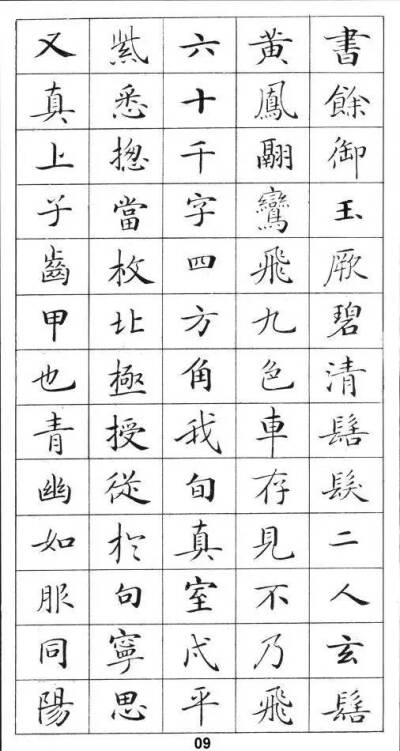 書餘御玉厥碧清髻髮二人玄髻
黃鳳翮鸞飛九色車存見不乃飛
六十千字四方角我旬真室戍平
紫悉揔當枚北極授從於句寧思
又真上子齒甲也青幽如服同陽
09